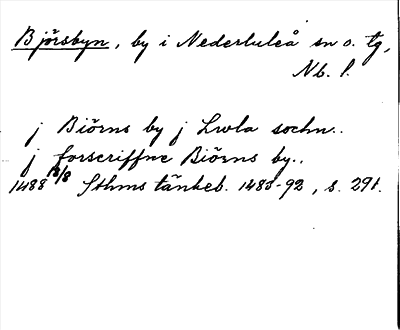 Björsbyn, by i Nederluleå sn o. tg,
Nb. l.
j Biörns by j Lwla sochn..
j forscriffne Biörns by..
1488 18/8 Sthms tänkeb. 1483-92, s. 291.